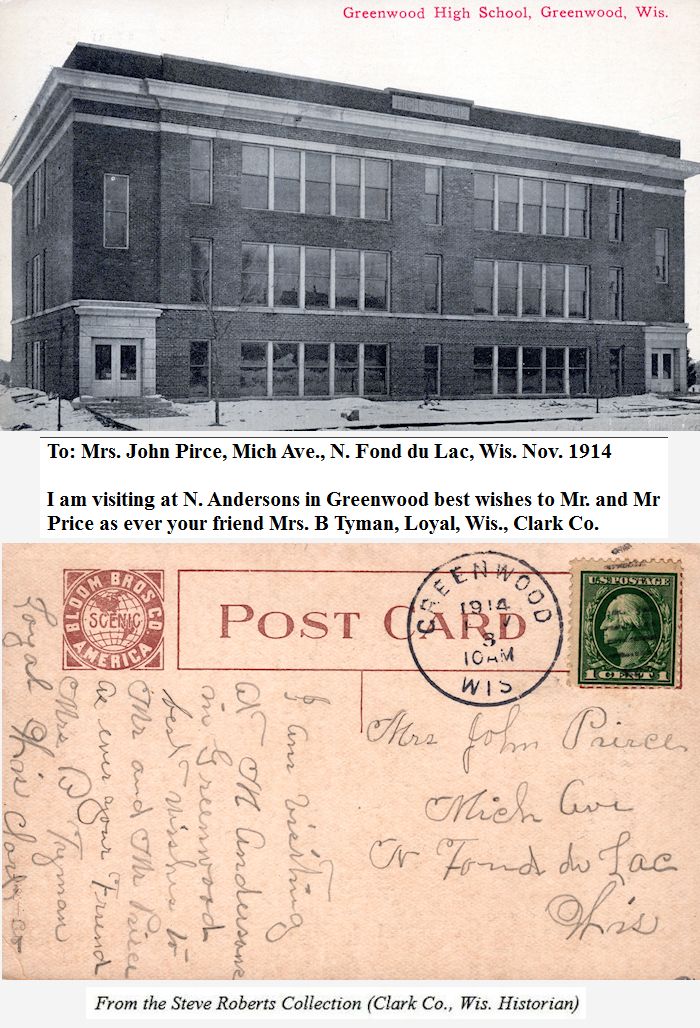 Greenwood High School, Greenwood, Wis.
HIGH SCHOOL
To: Mrs. John Pirce, Mich Ave., N. Fond du Lac, Wis. Nov. 1914
I am visiting at N. Andersons in Greenwood best wishes to Mr. and Mr
Price as ever your friend Mrs. B Tyman, Loyal, Wis., Clark Co.
BLOOM BROS CO
SCENIC
AMERICA
POST CARD
GREENWOOD
1914
8
10 AM
WIS
U.S. POSTAGE
1 CENT 1
I am visiting
at M Andersons
in Greenwood
best wishes to
Mr and Mr Pierce
as ever your Friend
Mrs B Tyman
Loyal Wis Clark Co
Mrs John Peirce
Mich Ave
N Fond du Lac
Wis
From the Steve Roberts Collection (Clark Co., Wis. Historian)